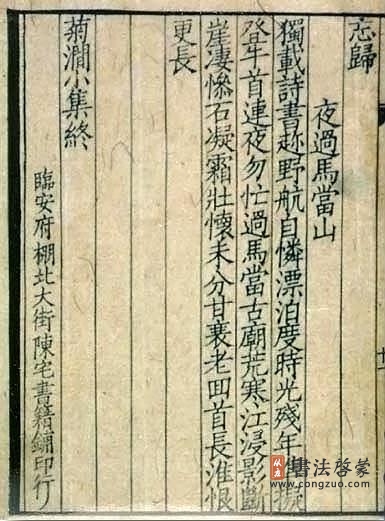 忘歸
夜過馬當山
獨載詩書趂野航自憐漂泊度時光殘年擬
登牛首連夜勿忙過馬當古廟荒寒江浸影斷
崖淒慘石凝霜壯懷未分甘衰老囬首長淮恨
更長
菊澗小集終
臨安府棚北大街陳宅書籍鋪印行
書法啓蒙
www.congzuo.com